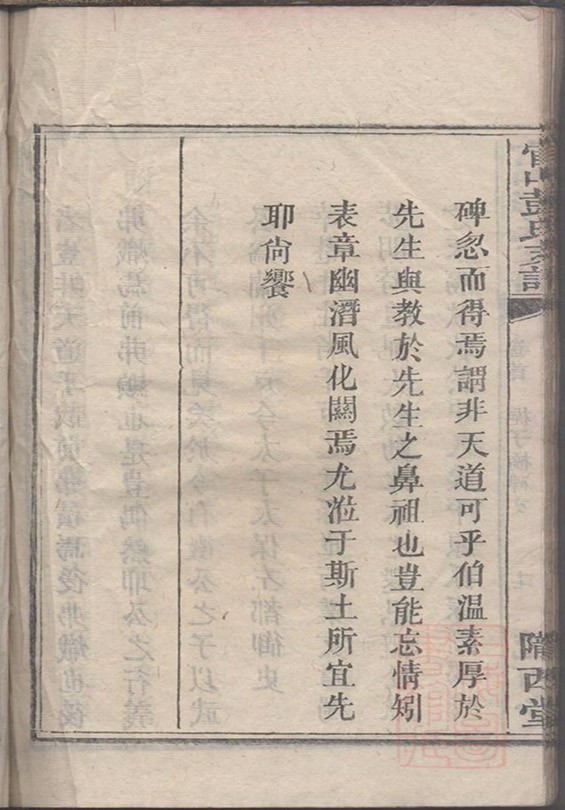 碑忽而得焉謂非天道可乎伯溫素厚於
先生與教於先生之鼻祖也豈能忘情矧
表章幽潛風化關焉尤涖于斯土所宜先
耶尙饗
彭氏支譜
卷首
隴西堂